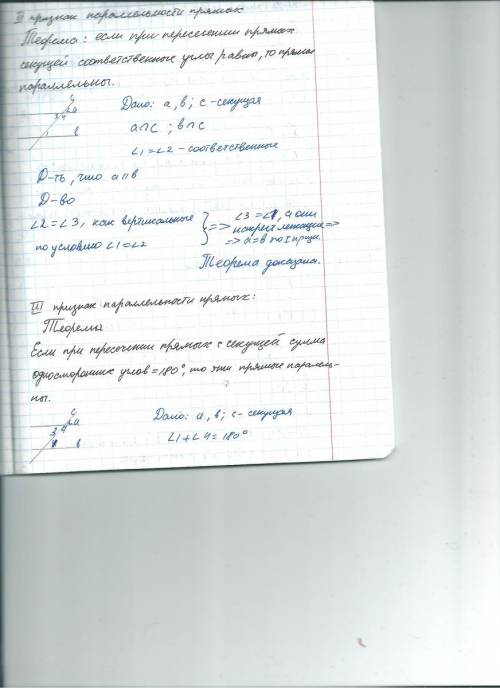 II признак параллельности прямых
Теорема: если при пересечении прямых
секущей соответственные углы равны, то прямы
параллельны.
c
a
3 4
в
Дано: a, в; c - секущая
a∩c ; в∩c
∠1=∠2 - соответственные
Д-ть, что a II в
Д-во
∠2=∠3, как вертикальные
по условию ∠1=∠2
=> ∠3=∠1, а они
накрест лежащие =>
=> a=в по I призн.
Теорема доказана.
III признак параллельности прямых:
Теорема
Если при пересечении прямых с секущей сумма
односторонних углов =180°, то эти прямые паралель-
ны.
c
a
3 4
1
в
Дано: a, в; c - секущая
∠1+∠4=180°